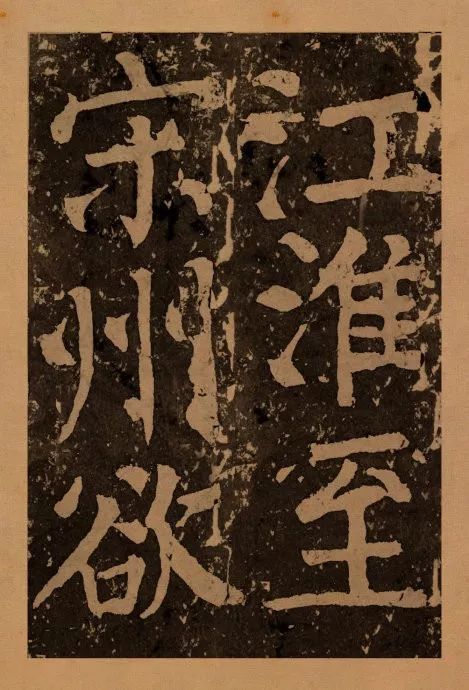 江淮至
宋州欲